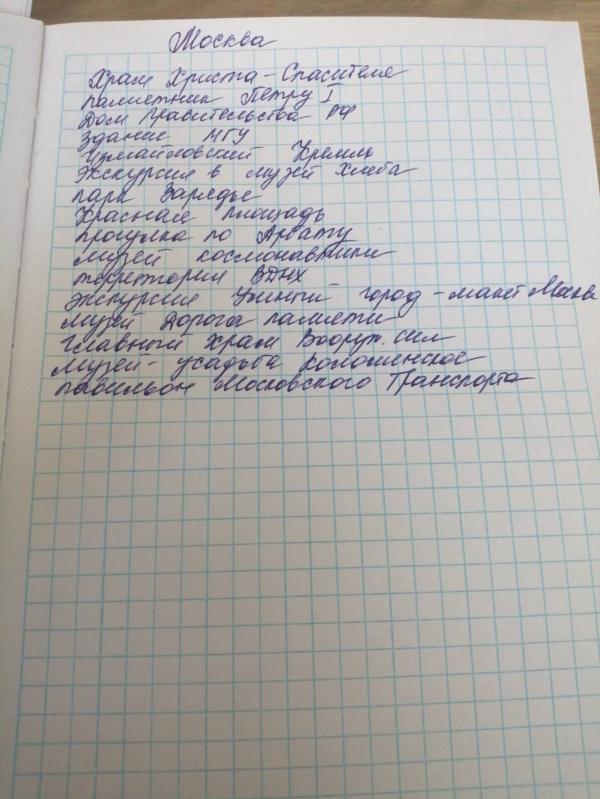 Москва
Храм Христа-Спасителя
памятник Петру I
Дом правительства РФ
здание МГУ
Измайловский Кремль
экскурсия в музей Хлеба
парк Зарядье
Красная площадь
прогулка по Арбату
музей космонавтики
территория ВДНХ
экскурсия Умный город-макет Москвы
музей Дорога памяти
Главный храм Вооруж. сил
музей-усадьба Коломенское
павильон Московского Транспорта